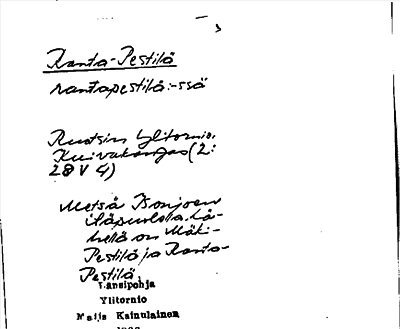 Ranta-Pestilä
rantapestilä:-ssä
Ruotsin Ylitornio,
Kuivakangas (2:
28 V 4)
Metsä Isonjoen
itäpuolella. Lä-
hellä on Mäki-
Pestilä ja Ranta-
Pestilä.
Länsipohja
Ylitornio
Maija Kainulainen